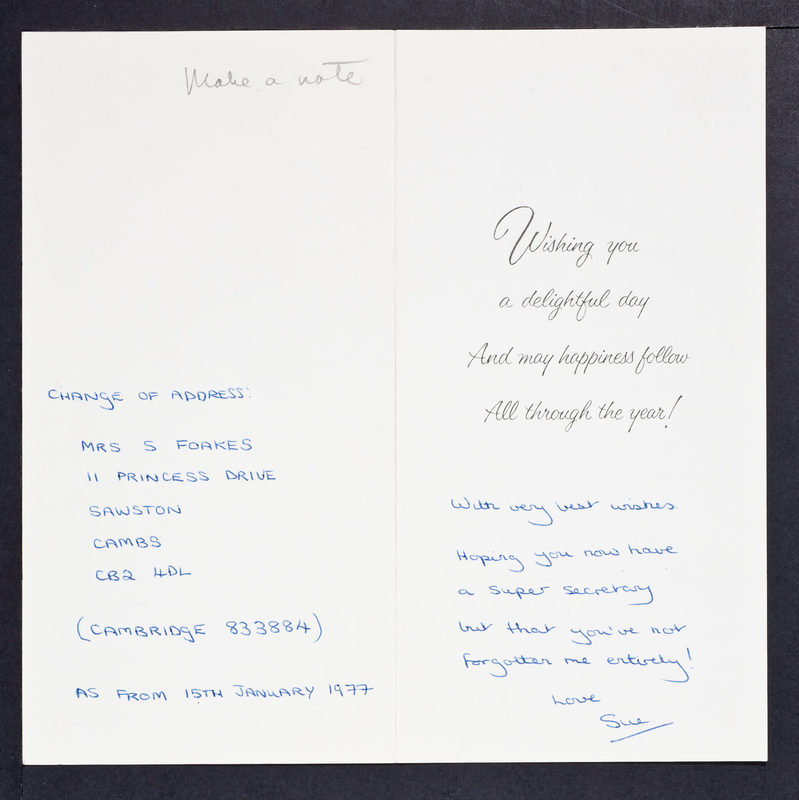 Make a note
CHANGE OF ADDRESS:
MRS S FOAKES
11 PRINCESS DRIVE
SAWSTON
CAMBS
CB2 4DL
(CAMBRIDGE 833884)
AS FROM 15TH JANUARY 1977
Wishing you
a delightful day
And may happiness follow
All through the year!
With very best wishes.
Hoping you now have
a super secretary
but that you've not
forgotten me entirely!
Love
Sue